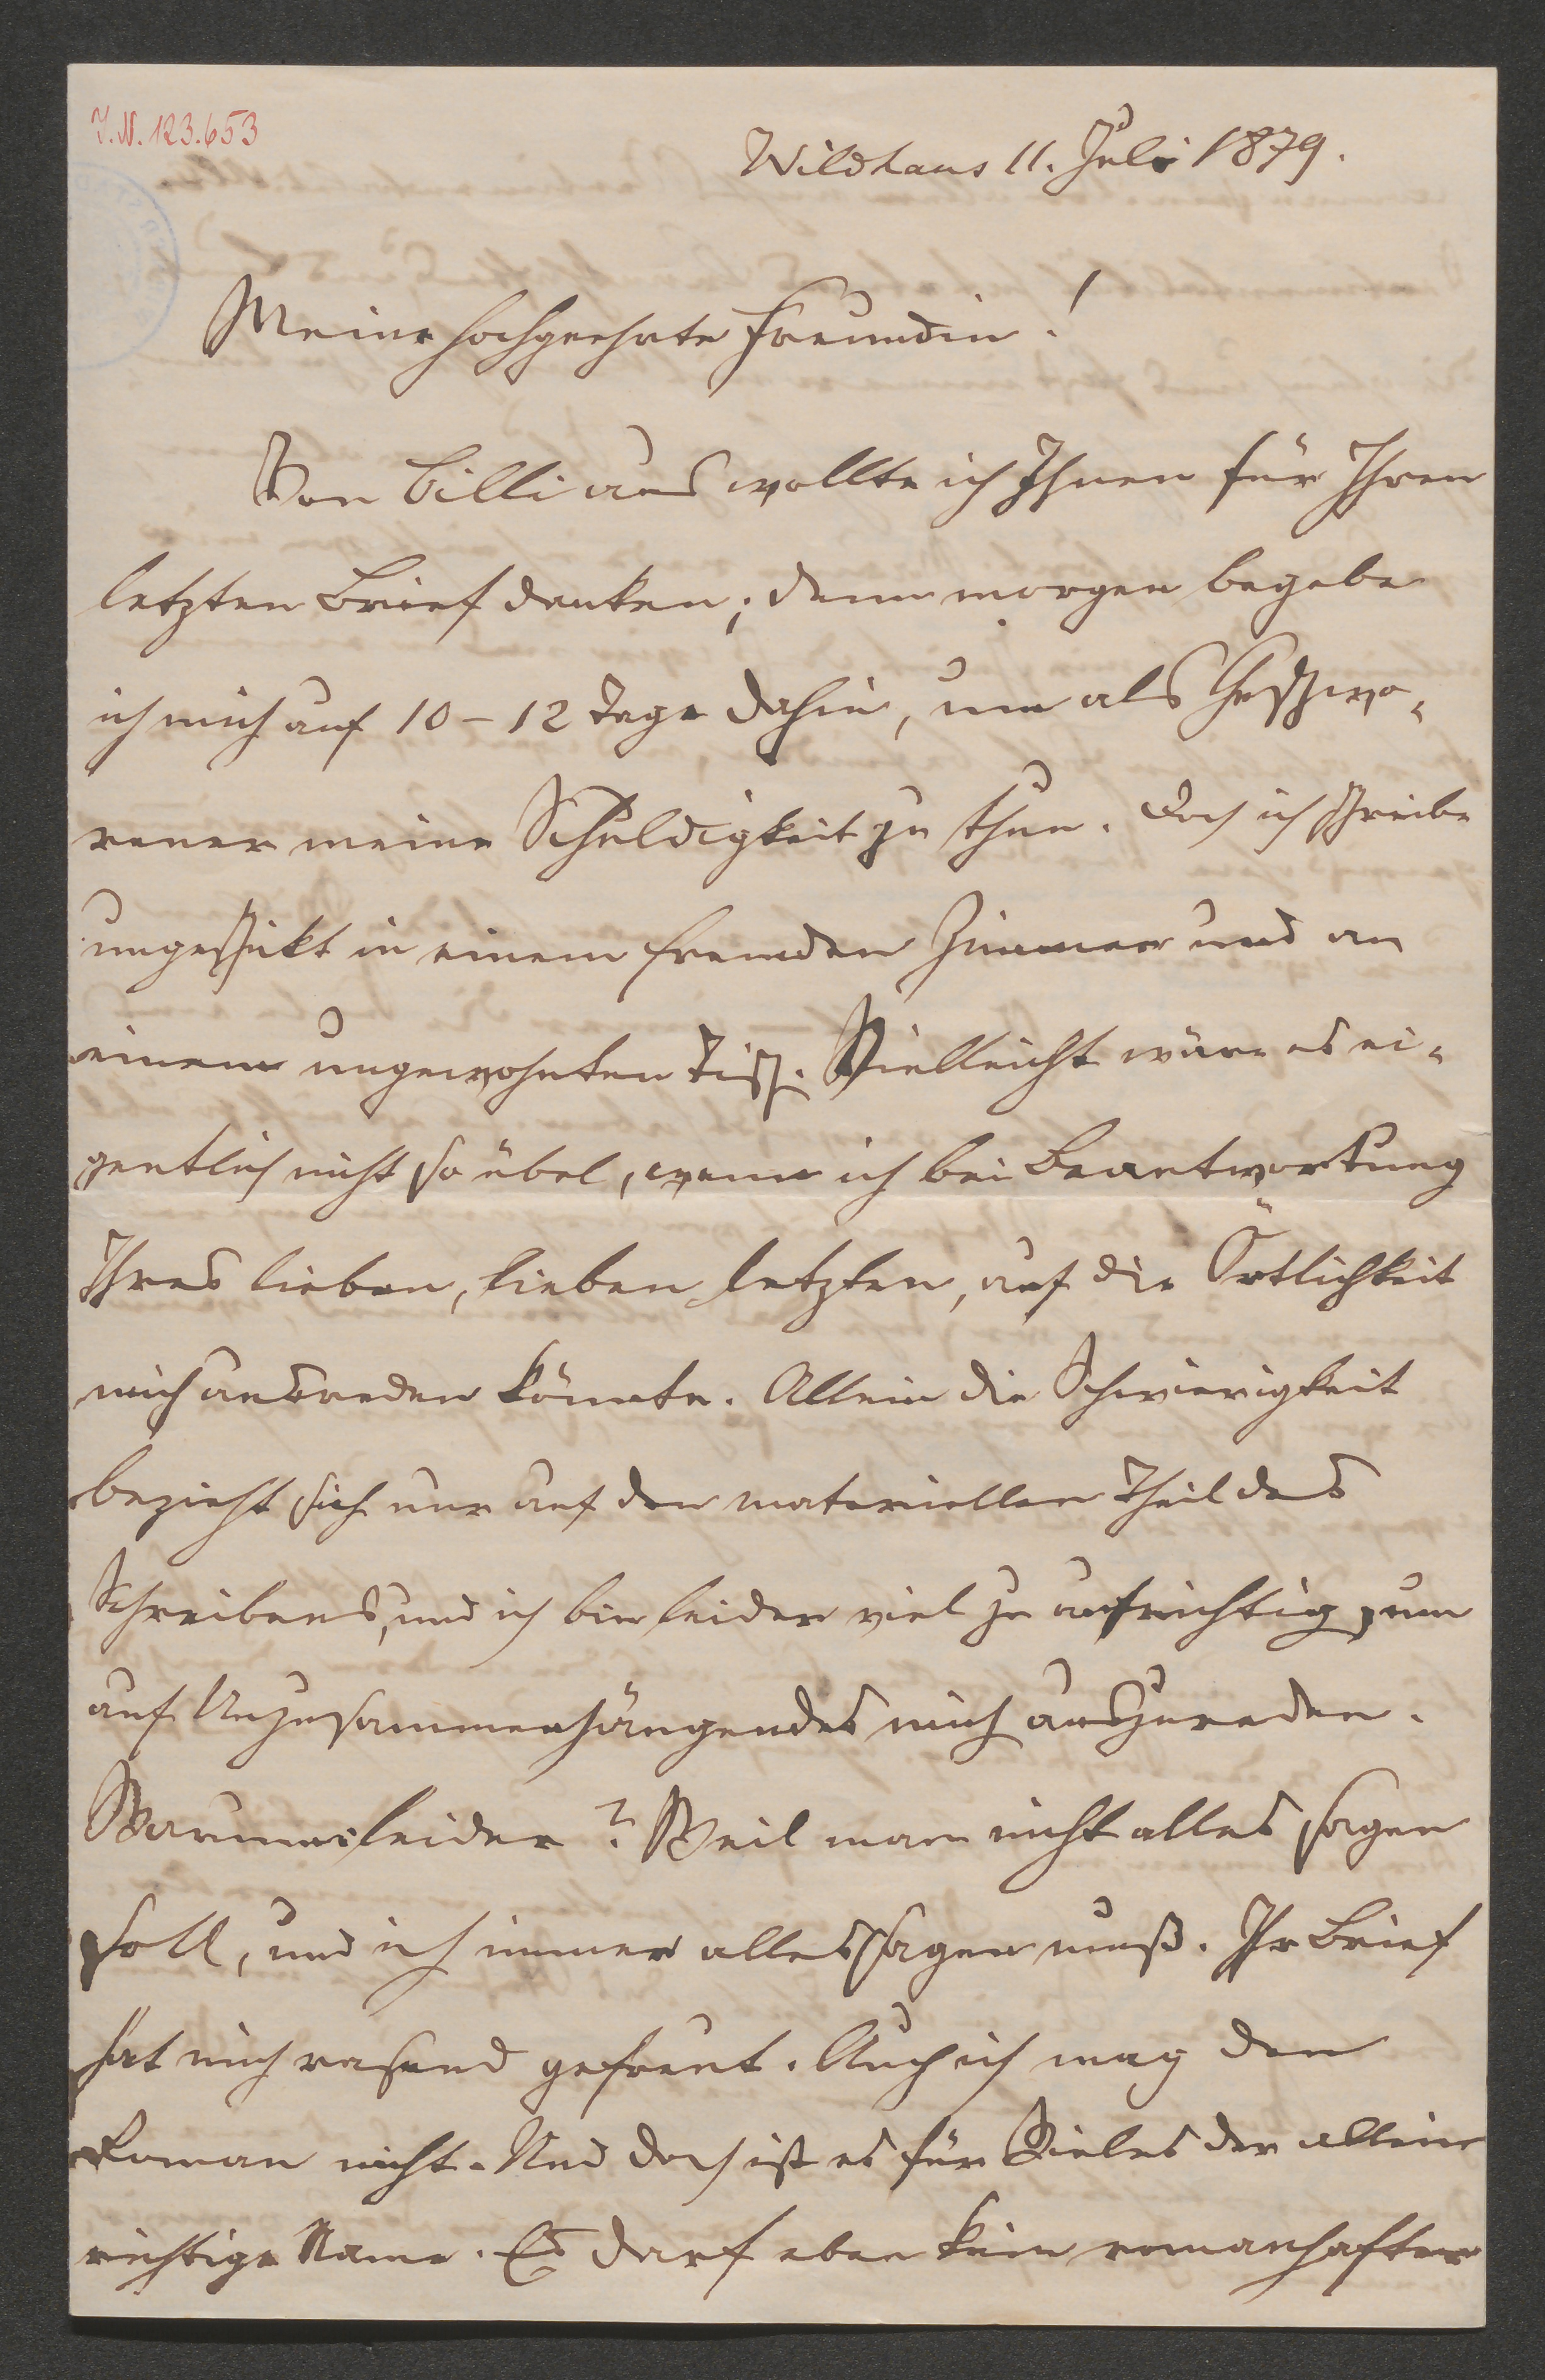 J.N. 123.653
Wildhaus 11. Juli 1879.
Meine hochgeehrte Freundin!
Von Cilli aus wollte ich Ihnen für Ihren
letzten Brief danken; denn morgen begebe
ich mich auf 10–12 Tage dahin, um als Geschwo-
rener meine Schuldigkeit zu thun. Doch ich schreibe
ungeschikt in einem fremden Zimmer und an
einem ungewohnten Tisch. Vielleicht wäre es ei-
gentlich nicht so übel, wenn ich bei Beantwortung
Ihres lieben, lieben letzten, auf die Örtlichkeit
mich ausreden könnte. Allein die Schwierigkeit
bezieht sich nur auf den materiellen Theil des
Schreibens, und ich bin leider viel zu aufrichtig, um
auf Unzusammenhängendes mich auszureden.
Warum leider? Weil man nicht alles sagen
soll, und ich immer alles sagen muß. Ihr Brief
hat mich rasend gefreut. Auch ich mag den
Roman nicht. Und doch ist es für Vieles der allein
richtige Name. Es darf eben kein romanhafter